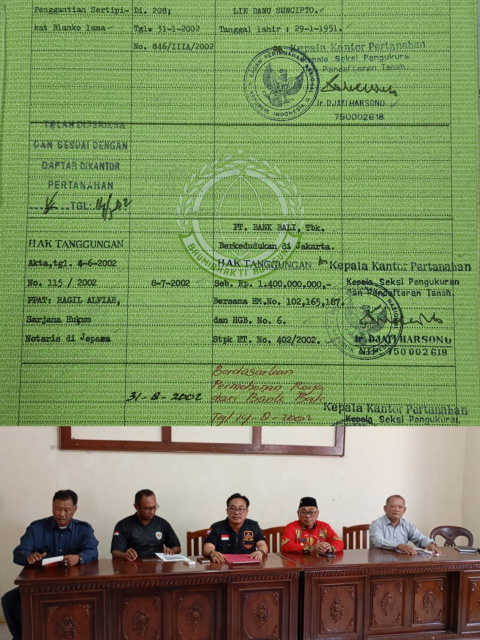 Penggantian Sertipi- Di. 208; LIE DANU SUNCIPTO.
kat Blanko lama Tgl. 31-1-2002 Tanggal lahir : 29-1-1951.
No. 846/IIIA/2002 Kepala Kantor Pertanahan
Kepala Seksi Pengukuran
Pendaftaran Tanah.
Ir. DJATI HARSONO
750002618
TELAH DIPERIKSA
DAN SESUAI DENGAN
DAFTAR DIKANTOR
PERTANAHAN
TGL:
BHUMIBHAKTI
PT. BANK BALI, Tbk.
HAK TANGGUNGAN Berkedudukan di Jakarta.
Akta,tgl. 4-6-2002 HAK TANGGUNGAN Kepala Kantor Pertanahan
No. 115 / 2002 8-7-2002 Seb. Rp. 1.400.000.000,- Kepala Seksi Pengukuran
dan Pendaftaran Tanah.
PPAT: HAGIL ALFIAH, Bersama HM.No. 102,165,187.
Sarjana Hukum dan HGB. No. 6.
Notaris di Jepara Stpk HT. No. 402/2002. Ir. DJATI HARSONO
NIP. 750002618
Berdasarkan
31-8-2002 Permohonan Roya
dari Bank Bali
Kepala Kantor Pertanahan
Kepala Seksi Pengukuran